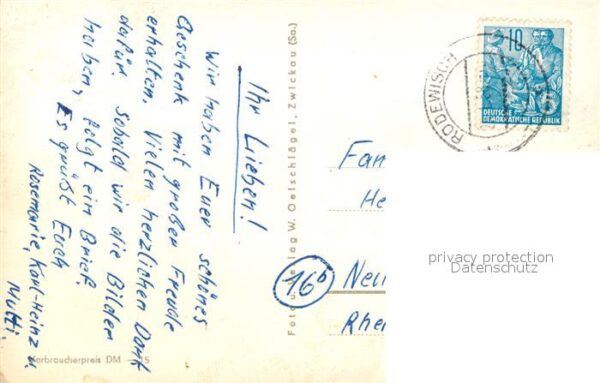 Ihr Lieben!
Wir haben Euer schönes
Geschenk mit großer Freude
erhalten. Vielen herzlichen Dank
dafür. Sobald wir die Bilder
haben, folgt ein Brief.
Es grüßt Euch
Rosemarie, Karl-Heinz u.
Mutti.
Verbraucherpreis DM 15
W. Oetschlägel, Zwickau (Sa.)
10
DEUTSCHE
DEMOKRATISCHE REPUBLIK
RODEWISCH
Fam
He
16b
Neu
Rhe
privacy protection
Datenschutz